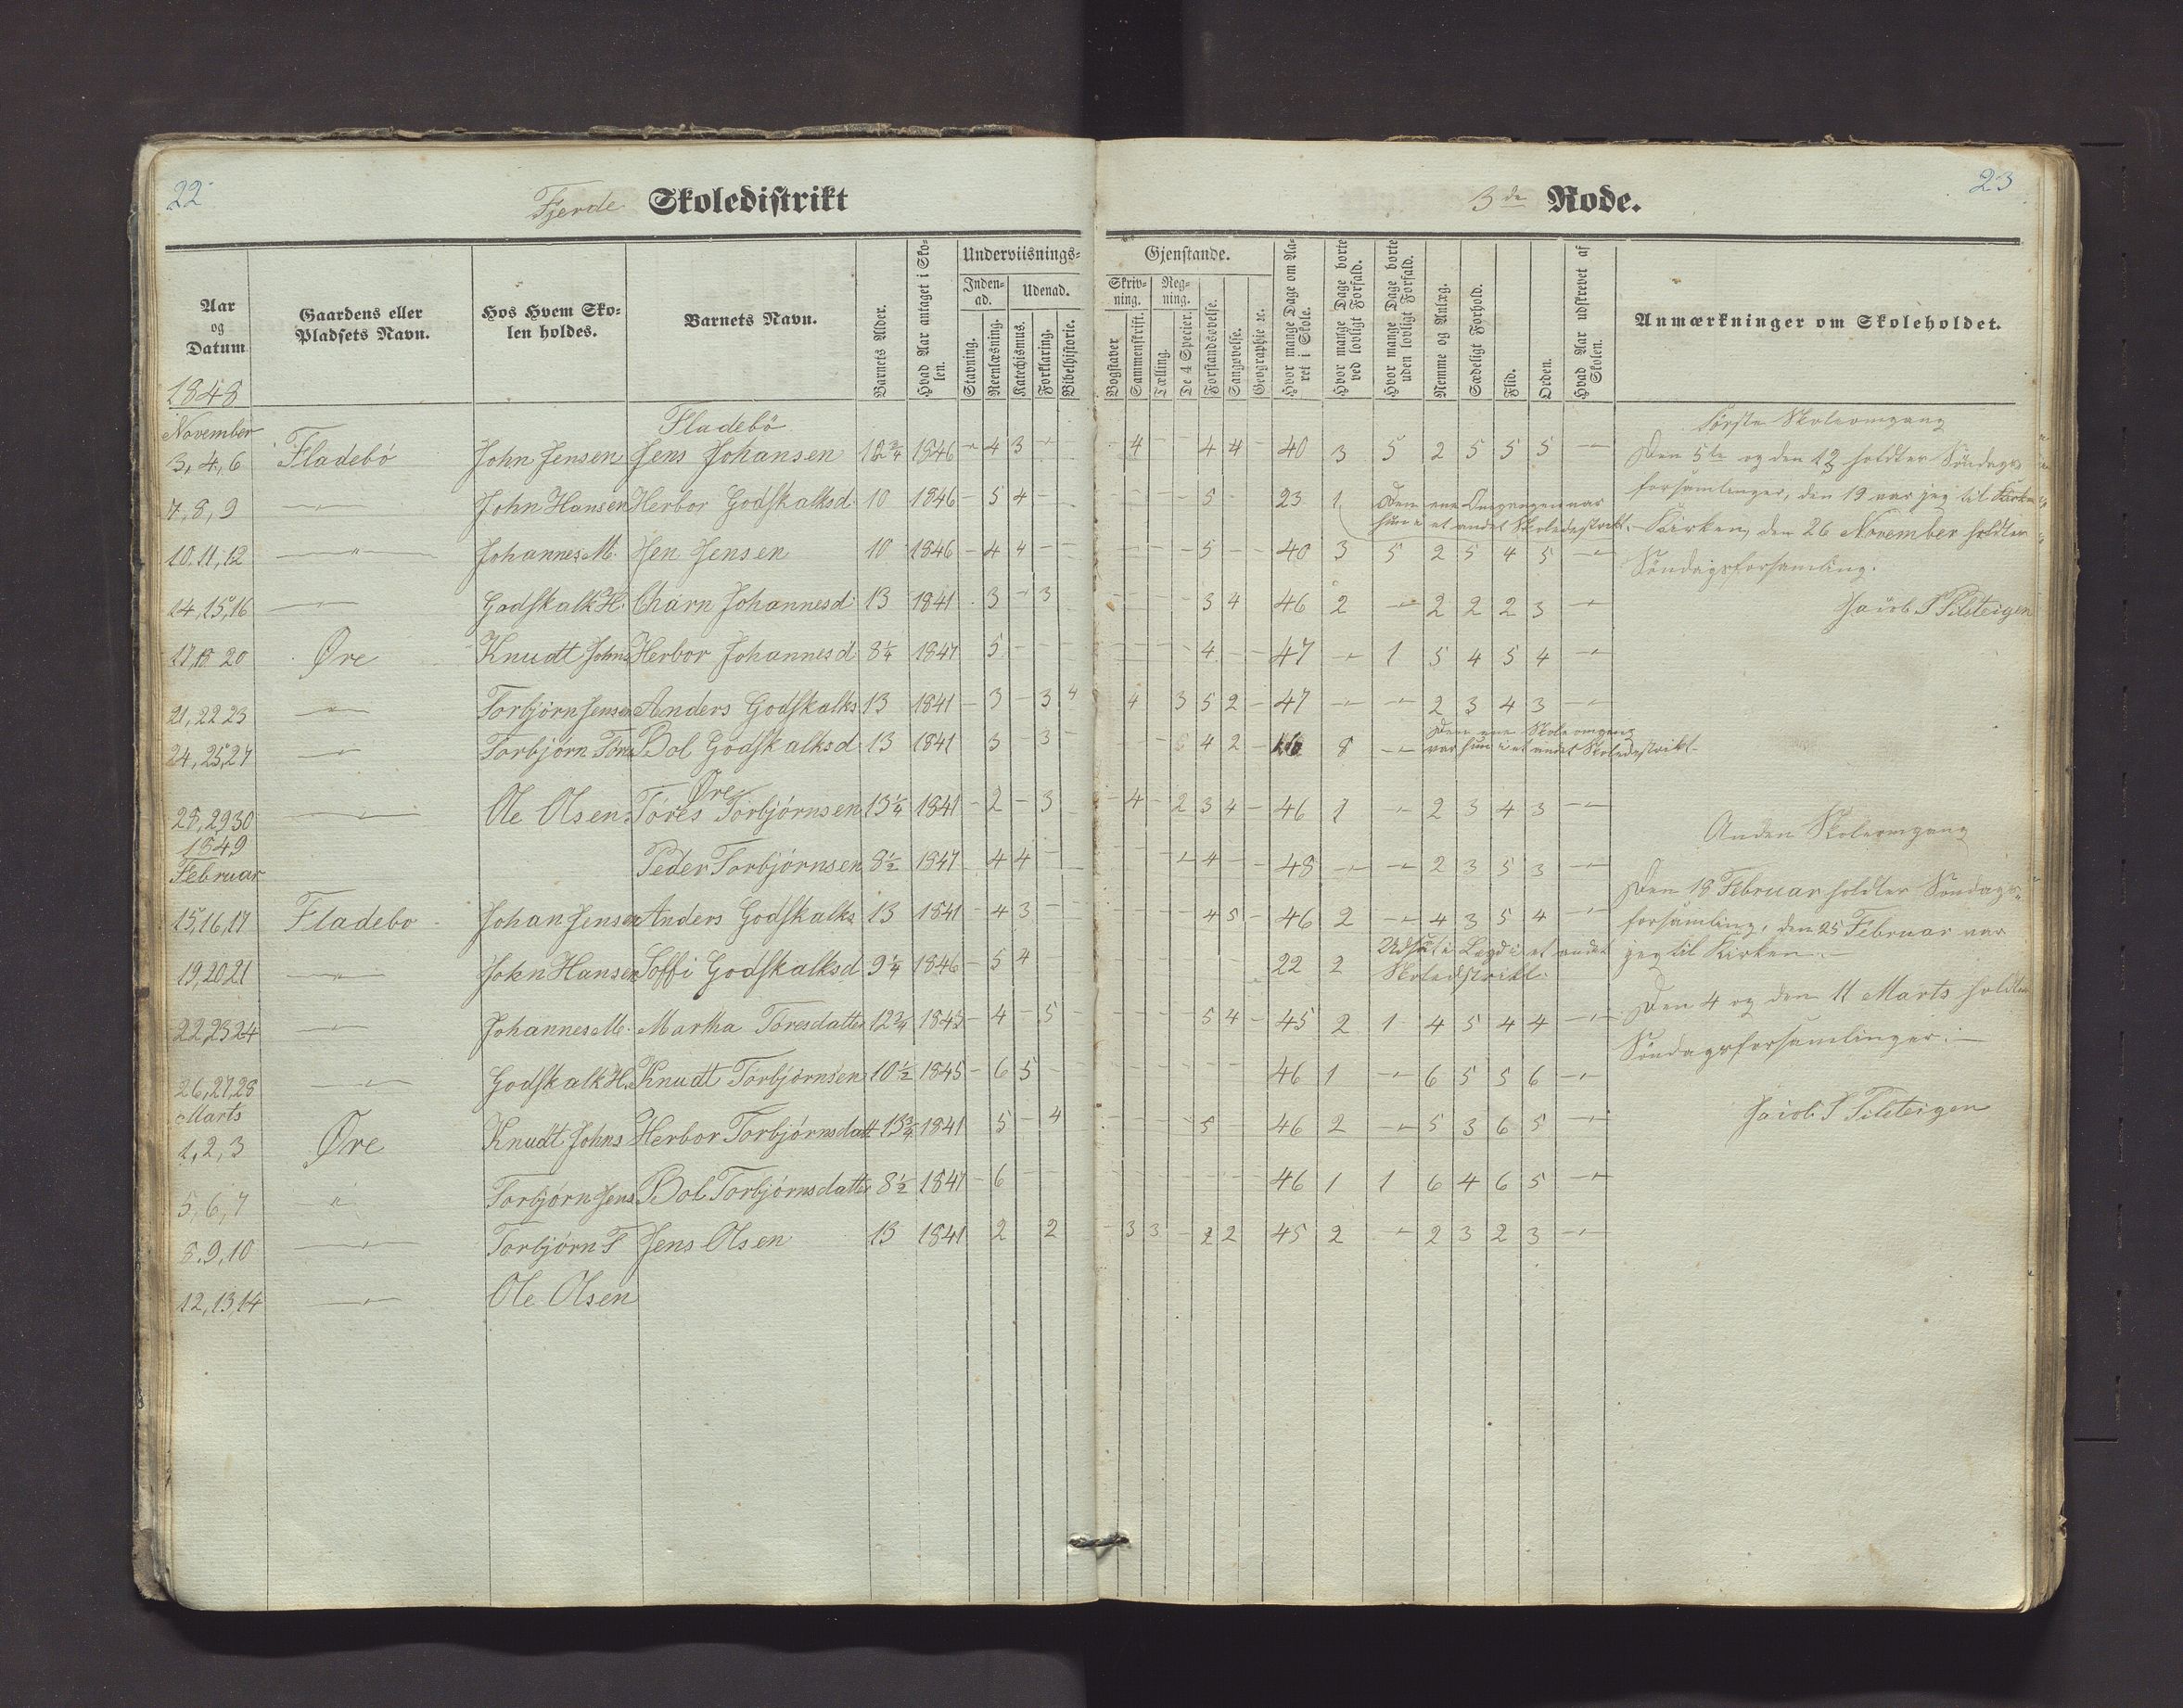 22
Fjerde Skoledistrikt
3de Rode.
23
Aar og Datum
Gaardens eller Pladsets Navn.
Hos Hvem Skolen holdes.
Barnets Navn.
Barnets Alder.
Hvad Aar antaget i Skolen.
Underviisnings-
Inden-ad.
Udenad.
Stavning.
Reenlæsning.
Katechismus.
Forklaring.
Bibelhistorie.
Gjenstande.
Skriv-ning.
Reg-ning.
Bogstaver
Sammenskrift.
Tælling.
De 4 Specier.
Forstandsøvelse.
Sangøvelse.
Geographie &c.
Hvor mange Dage om Aaret i Skole.
Hvor mange Dage borte ved lovligt Forfald.
Hvor mange Dage borte uden lovligt Forfald.
Nemme og Anlæg.
Sædeligt Forhold.
Flid.
Orden.
Hvad Aar udskrevet af Skolen.
Anmærkninger om Skoleholdet.
1848
November
Fladebö
3, 4, 6 Fladebö John Jensen Jens Johansen 12 3/4 1846 - 4 3 - - - 4 - - 4 4 - 40 3 5 2 5 5 5 -"-
7, 8, 9 -"- John Hansen Herbor Godskalksd 10 1846 - 5 4 - - - - - - 5 - 23 1 Den ene Omgangen var
hun i et andet Skoledistrikt.
10. 11, 12 -"- Johannes M. Jen Jensen 10 1846 - 4 4 - - - - - - 5 - - 40 3 5 2 5 4 5 -"-
14, 15, 16 -"- Godskalk H. Charn Johannesd 13 1841 - 3 - 3 - - - - 3 4 46 2 -"- 2 2 2 3 -"-
17, 18 20 Øre Knudt Johns Herbor Johannesd 8 1/4 1847 5 - - - - - - 4 - - 47 -"- 1 5 4 5 4 -"-
21, 22 23 -"- Torbjörn Jensen Anders Godskalks 13 1841 - 3 - 3 4 4 3 5 2 - 47 -"- -"- 2 3 4 3 -"-
24, 25, 27 -"- Torbjörn Töres Bol Godskalksd 13 1841 3 - 3 - - - 4 2 - 8 -"- Den ene Skoleomgang
var hun i et andet Skoledistrikt-
Øre
28, 29 30 -"- Ole Olsen Töres Torbjörnsen 13 1/4 1841 - 2 - 3 - 4 - 2 3 4 - 46 1 -"- 2 3 4 3 -"-
1849
Februar Peder Torbjörnsen 8 1/2 1847 - 4 4 - - - - -"- 4 - - 48 -"- -"- 2 3 5 3 -"-
15, 16, 17 Fladebo Johan Jensen Anders Godskalks 13 1841 - 4 3 - - - - - - 4 5 - 46 2 -"- 4 3 5 4 -"-
19, 20 21 -"- John Hansen Soffi Godskalksd 9 1/4 1846 - 5 4 - - - - - - - - 22 2 Udsat i Legd i et andet
Skoledistrikt.
22, 23 24 -"- Johannes M. Martha Töresdatter 12 3/4 1843 - 4 - 5 - - - - - 5 4 - 45 2 1 4 5 4 4 -"-
26, 27, 28 -"- Godskalk H. Knudt Torbjörnsen 10 1/2 1845 - 6 5 - - - - - - - 46 1 -"- 6 5 5 6 -"-
Marts
1, 2, 3 Øre Knudt Johns Herbor Torbjörnsdatt 13 3/4 1841 5 - 4 - - - - 5 - 46 2 -"- 5 3 6 5 -"-
5, 6, 7 -"- Torbjörn Jens Bol Torbjörnsdatter 8 1/2 1847 - 6 - - - - - - - - 46 1 1 6 4 6 5 -"-
8. 9, 10 -"- Torbjörn T Jens Olsen 13 1841 2 2 - 3 3 - 2 2 45 2 -"- 2 3 2 3 -"-
12, 13, 14 -"- Ole Olsen
Förste Skoleomgang
Den 5te og den 12 holdtes Söndags-
forsamlinger, den 19 var jeg til
Kirken, den 26 November holdtes
Söndagsforsamling.
Jacob T Tilsteigen
Anden Skoleomgang
Den 18 Februar holdtes Söndags-
forsamling, den 25 Februar var
jeg til Kirken.-
Den 4 og den 11 Marts holdtes
Söndagsforsamlinger.-
Jacob T Tilsteigen